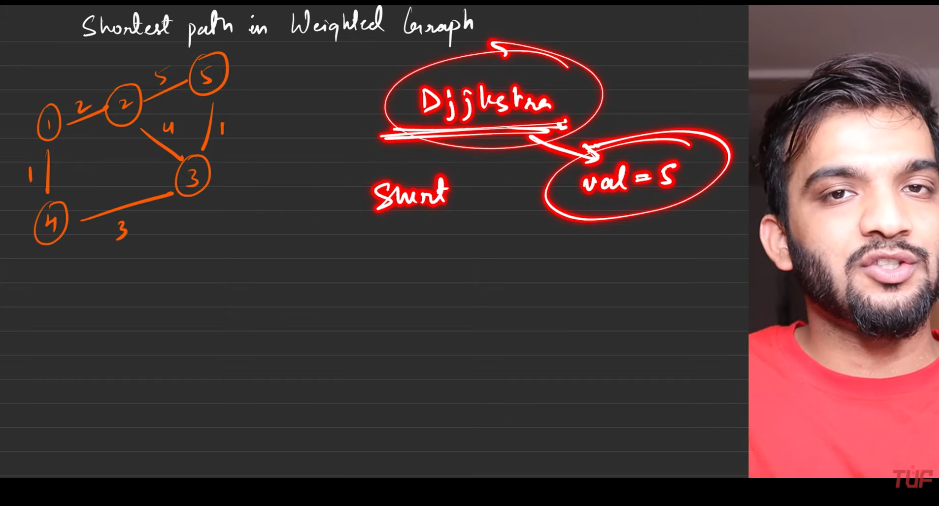 Shortest path in Weighted Graph
5
5
2
2
1
4
1
3
1
4
3
Djjkstra
val = 5
Short
TUF